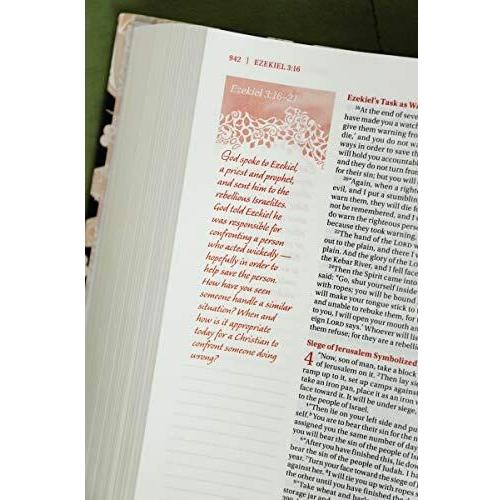 942 | EZEKIEL 3:16
Ezekiel 3:16–21
God spoke to Ezekiel,
a priest and prophet,
and sent him to the
rebellious Israelites.
God told Ezekiel he
was responsible for
confronting a person
who acted wickedly —
hopefully in order to
help save the person.
How have you seen
someone handle a similar
situation? When and
how is it appropriate
today for a Christian to
confront someone doing
wrong?
Ezekiel's Task as Wa
16At the end of seve
have made you a watch
give them warning from
die,' and you do not wa
ways in order to save th
will hold you accountabl
and they do not turn fro
for their sin; but you will
20"Again, when a right
evil, and I put a stumbli
warn them, they will die f
not be remembered, and I
do warn the righteous perso
because they took warning,
22The hand of the LORD w
out to the plain, and there I
plain. And the glory of the L
the Kebar River, and I fell face
24Then the Spirit came into
said: "Go, shut yourself inside
with ropes; you will be bound
will make your tongue stick to
and unable to rebuke them, for
to you, I will open your mouth an
eign LORD says.' Whoever will lis
them refuse; for they are a rebelli
Siege of Jerusalem Symbolized
4 "Now, son of man, take a block
of Jerusalem on it. 2Then lay sie
ramp up to it, set up camps against
take an iron pan, place it as an iron w
face toward it. It will be under siege,
to the people of Israel.
4"Then lie on your left side and put
self. You are to bear their sin for the n
assigned you the same number of day
you will bear the sin of the people of
6"After you have finished this, lie dow
bear the sin of the people of Judah. I ha
year. 7Turn your face toward the siege of
against her. 8I will tie you up with ropes s
to the other until you have finished the
9"Take wheat and barley, beans
storage jar and